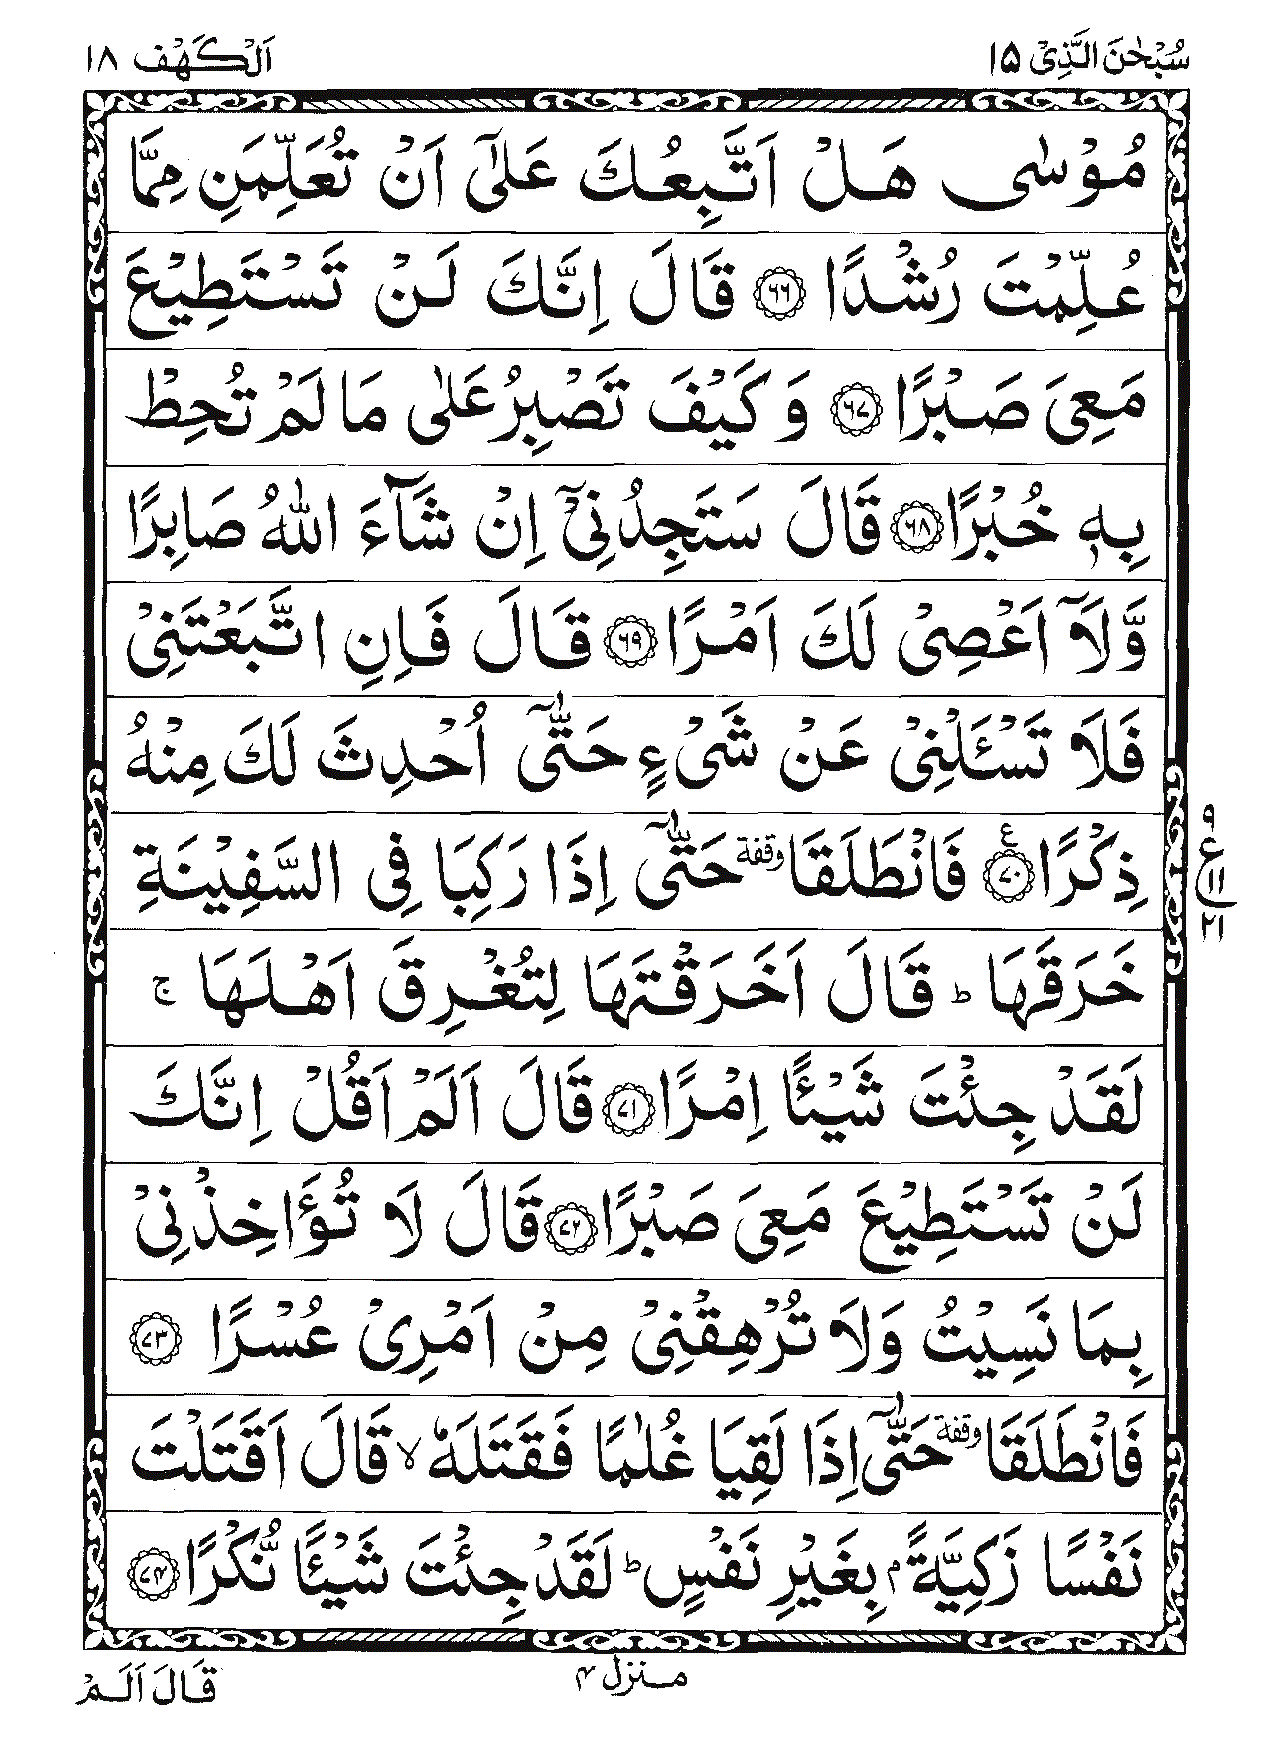 سُبْحٰنَ الَّذِیْ ۱۵
اَلْكَهْف ۱۸
مُوْسٰی هَلْ اَتَّبِعُكَ عَلٰۤی اَنْ تُعَلِّمَنِ مِمَّا
عُلِّمْتَ رُشْدًا ﴿۶۶﴾ قَالَ اِنَّكَ لَنْ تَسْتَطِیْعَ
مَعِیَ صَبْرًا ﴿۶۷﴾ وَ كَیْفَ تَصْبِرُ عَلٰی مَا لَمْ تُحِطْ
بِهٖ خُبْرًا ﴿۶۸﴾ قَالَ سَتَجِدُنِیْۤ اِنْ شَآءَ اللّٰهُ صَابِرًا
وَّلَاۤ اَعْصِیْ لَكَ اَمْرًا ﴿۶۹﴾ قَالَ فَاِنِ اتَّبَعْتَنِیْ
فَلَا تَسْـَٔلْنِیْ عَنْ شَیْءٍ حَتّٰۤی اُحْدِثَ لَكَ مِنْهُ
ذِكْرًا ﴿۷۰﴾ ع فَانْطَلَقَا وقفة حَتّٰۤی اِذَا رَكِبَا فِی السَّفِیْنَةِ
۹ ع ۱۱ ۲۱
خَرَقَهَا ؕ قَالَ اَخَرَقْتَهَا لِتُغْرِقَ اَهْلَهَا ۚ
لَقَدْ جِئْتَ شَیْـًٔا اِمْرًا ﴿۷۱﴾ قَالَ اَلَمْ اَقُلْ اِنَّكَ
لَنْ تَسْتَطِیْعَ مَعِیَ صَبْرًا ﴿۷۲﴾ قَالَ لَا تُؤَاخِذْنِیْ
بِمَا نَسِیْتُ وَلَا تُرْهِقْنِیْ مِنْ اَمْرِیْ عُسْرًا ﴿۷۳﴾
فَانْطَلَقَا وقفة حَتّٰۤی اِذَا لَقِیَا غُلٰمًا فَقَتَلَهٗ ۙ قَالَ اَقَتَلْتَ
نَفْسًا زَكِیَّةًۢ بِغَیْرِ نَفْسٍ ؕ لَقَدْ جِئْتَ شَیْـًٔا نُّكْرًا ﴿۷۴﴾
منزل ۴
قَالَ اَلَمْ